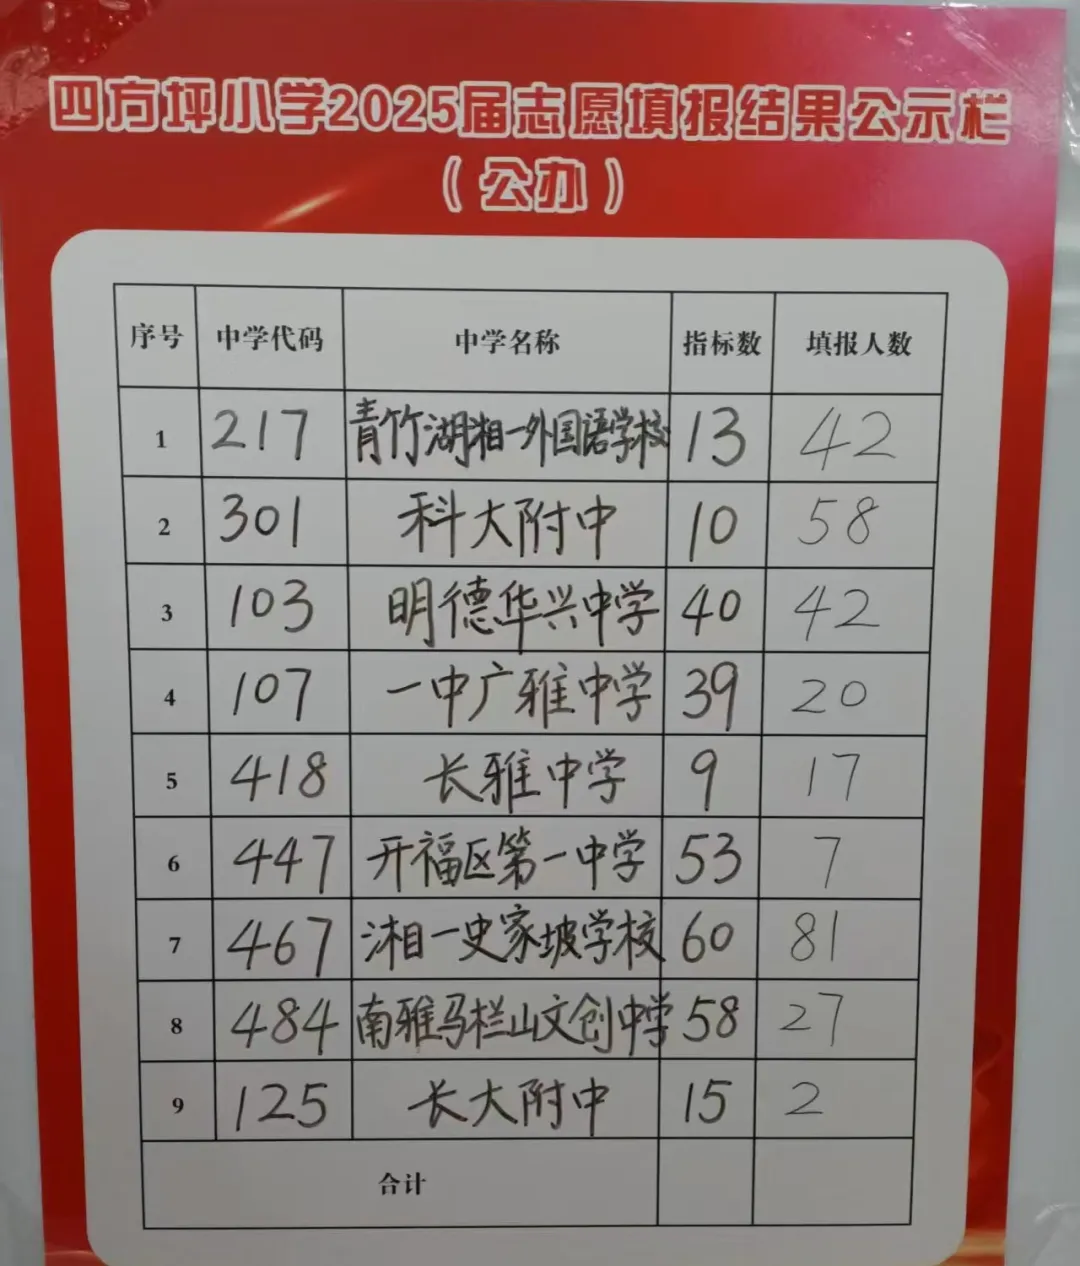 四方坪小学2025届志愿填报结果公示栏
（公办）
序号 中学代码 中学名称 指标数 填报人数
1 217 青竹湖湘一外国语学校 13 42
2 301 科大附中 10 58
3 103 明德华兴中学 40 42
4 107 一中广雅中学 39 20
5 418 长雅中学 9 17
6 447 开福区第一中学 53 7
7 467 湘一史家坡学校 60 81
8 484 南雅马栏山文创中学 58 27
9 125 长大附中 15 2
合计